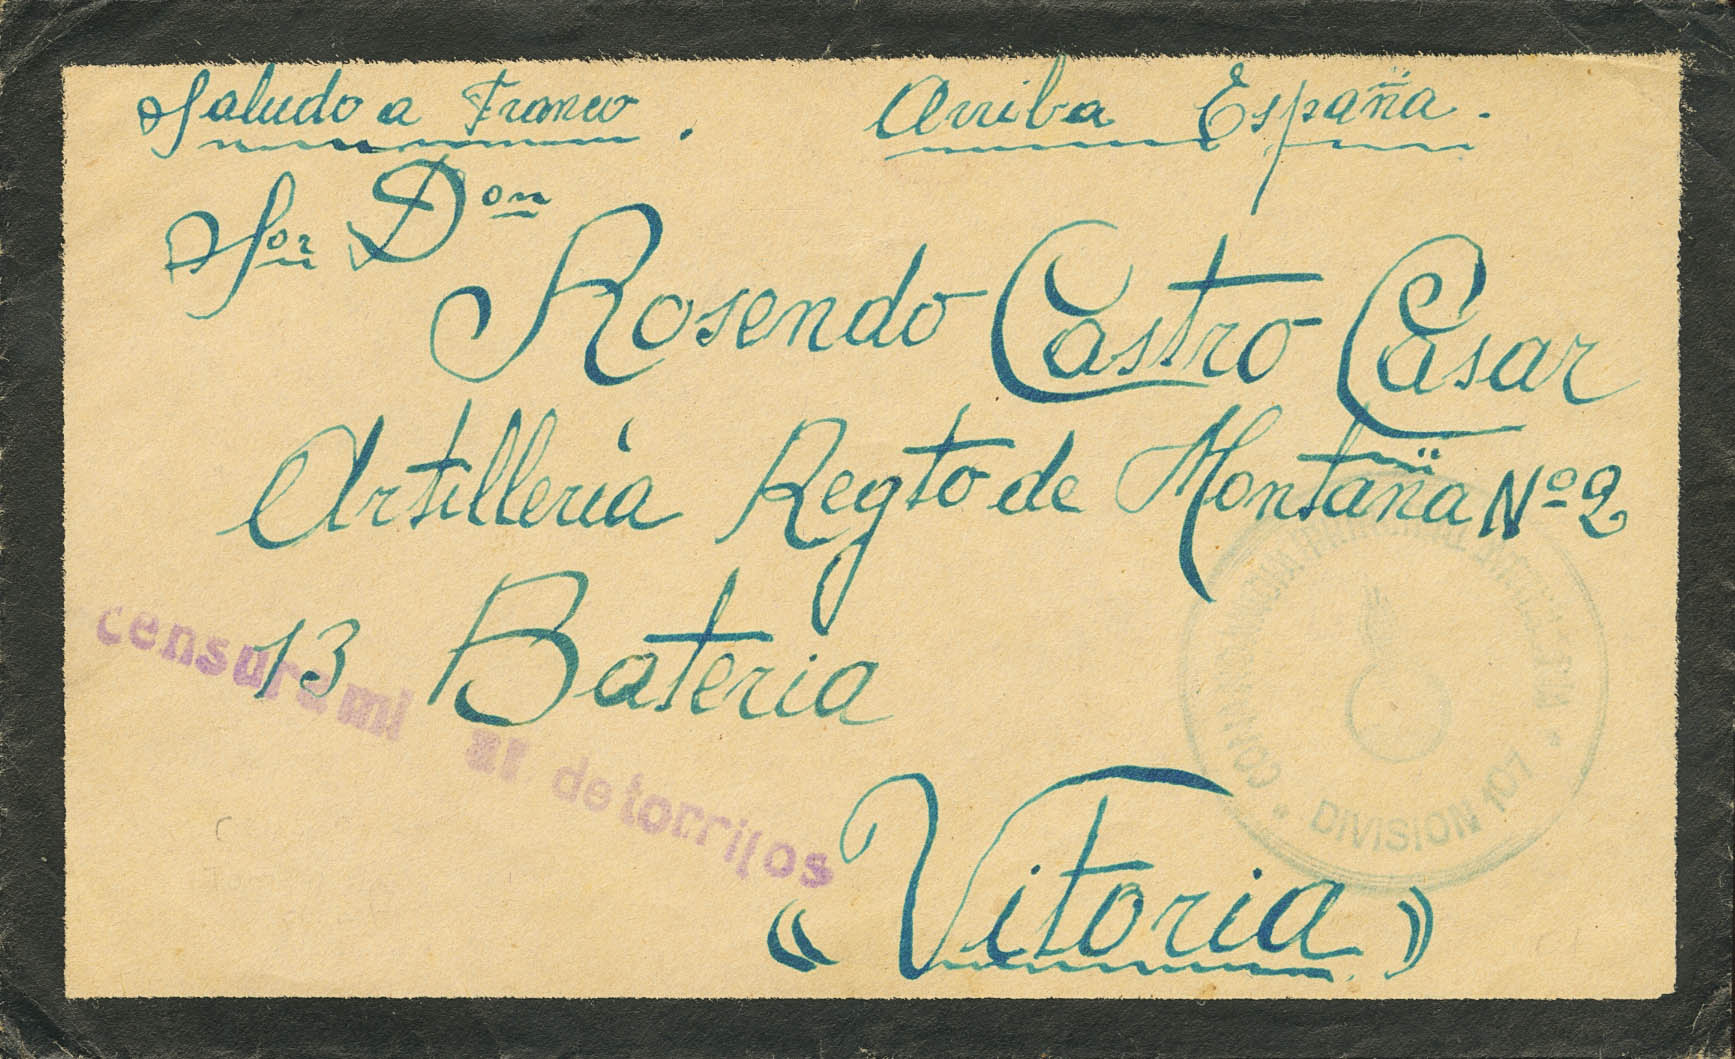 Saludo a Franco. Arriba España.
Sor Don
Rosendo Castro Casar
Artillería Regto de Montaña Nº 2
13 Bateria
censura mi ar de torrijos
DIVISION 107
« Vitoria »